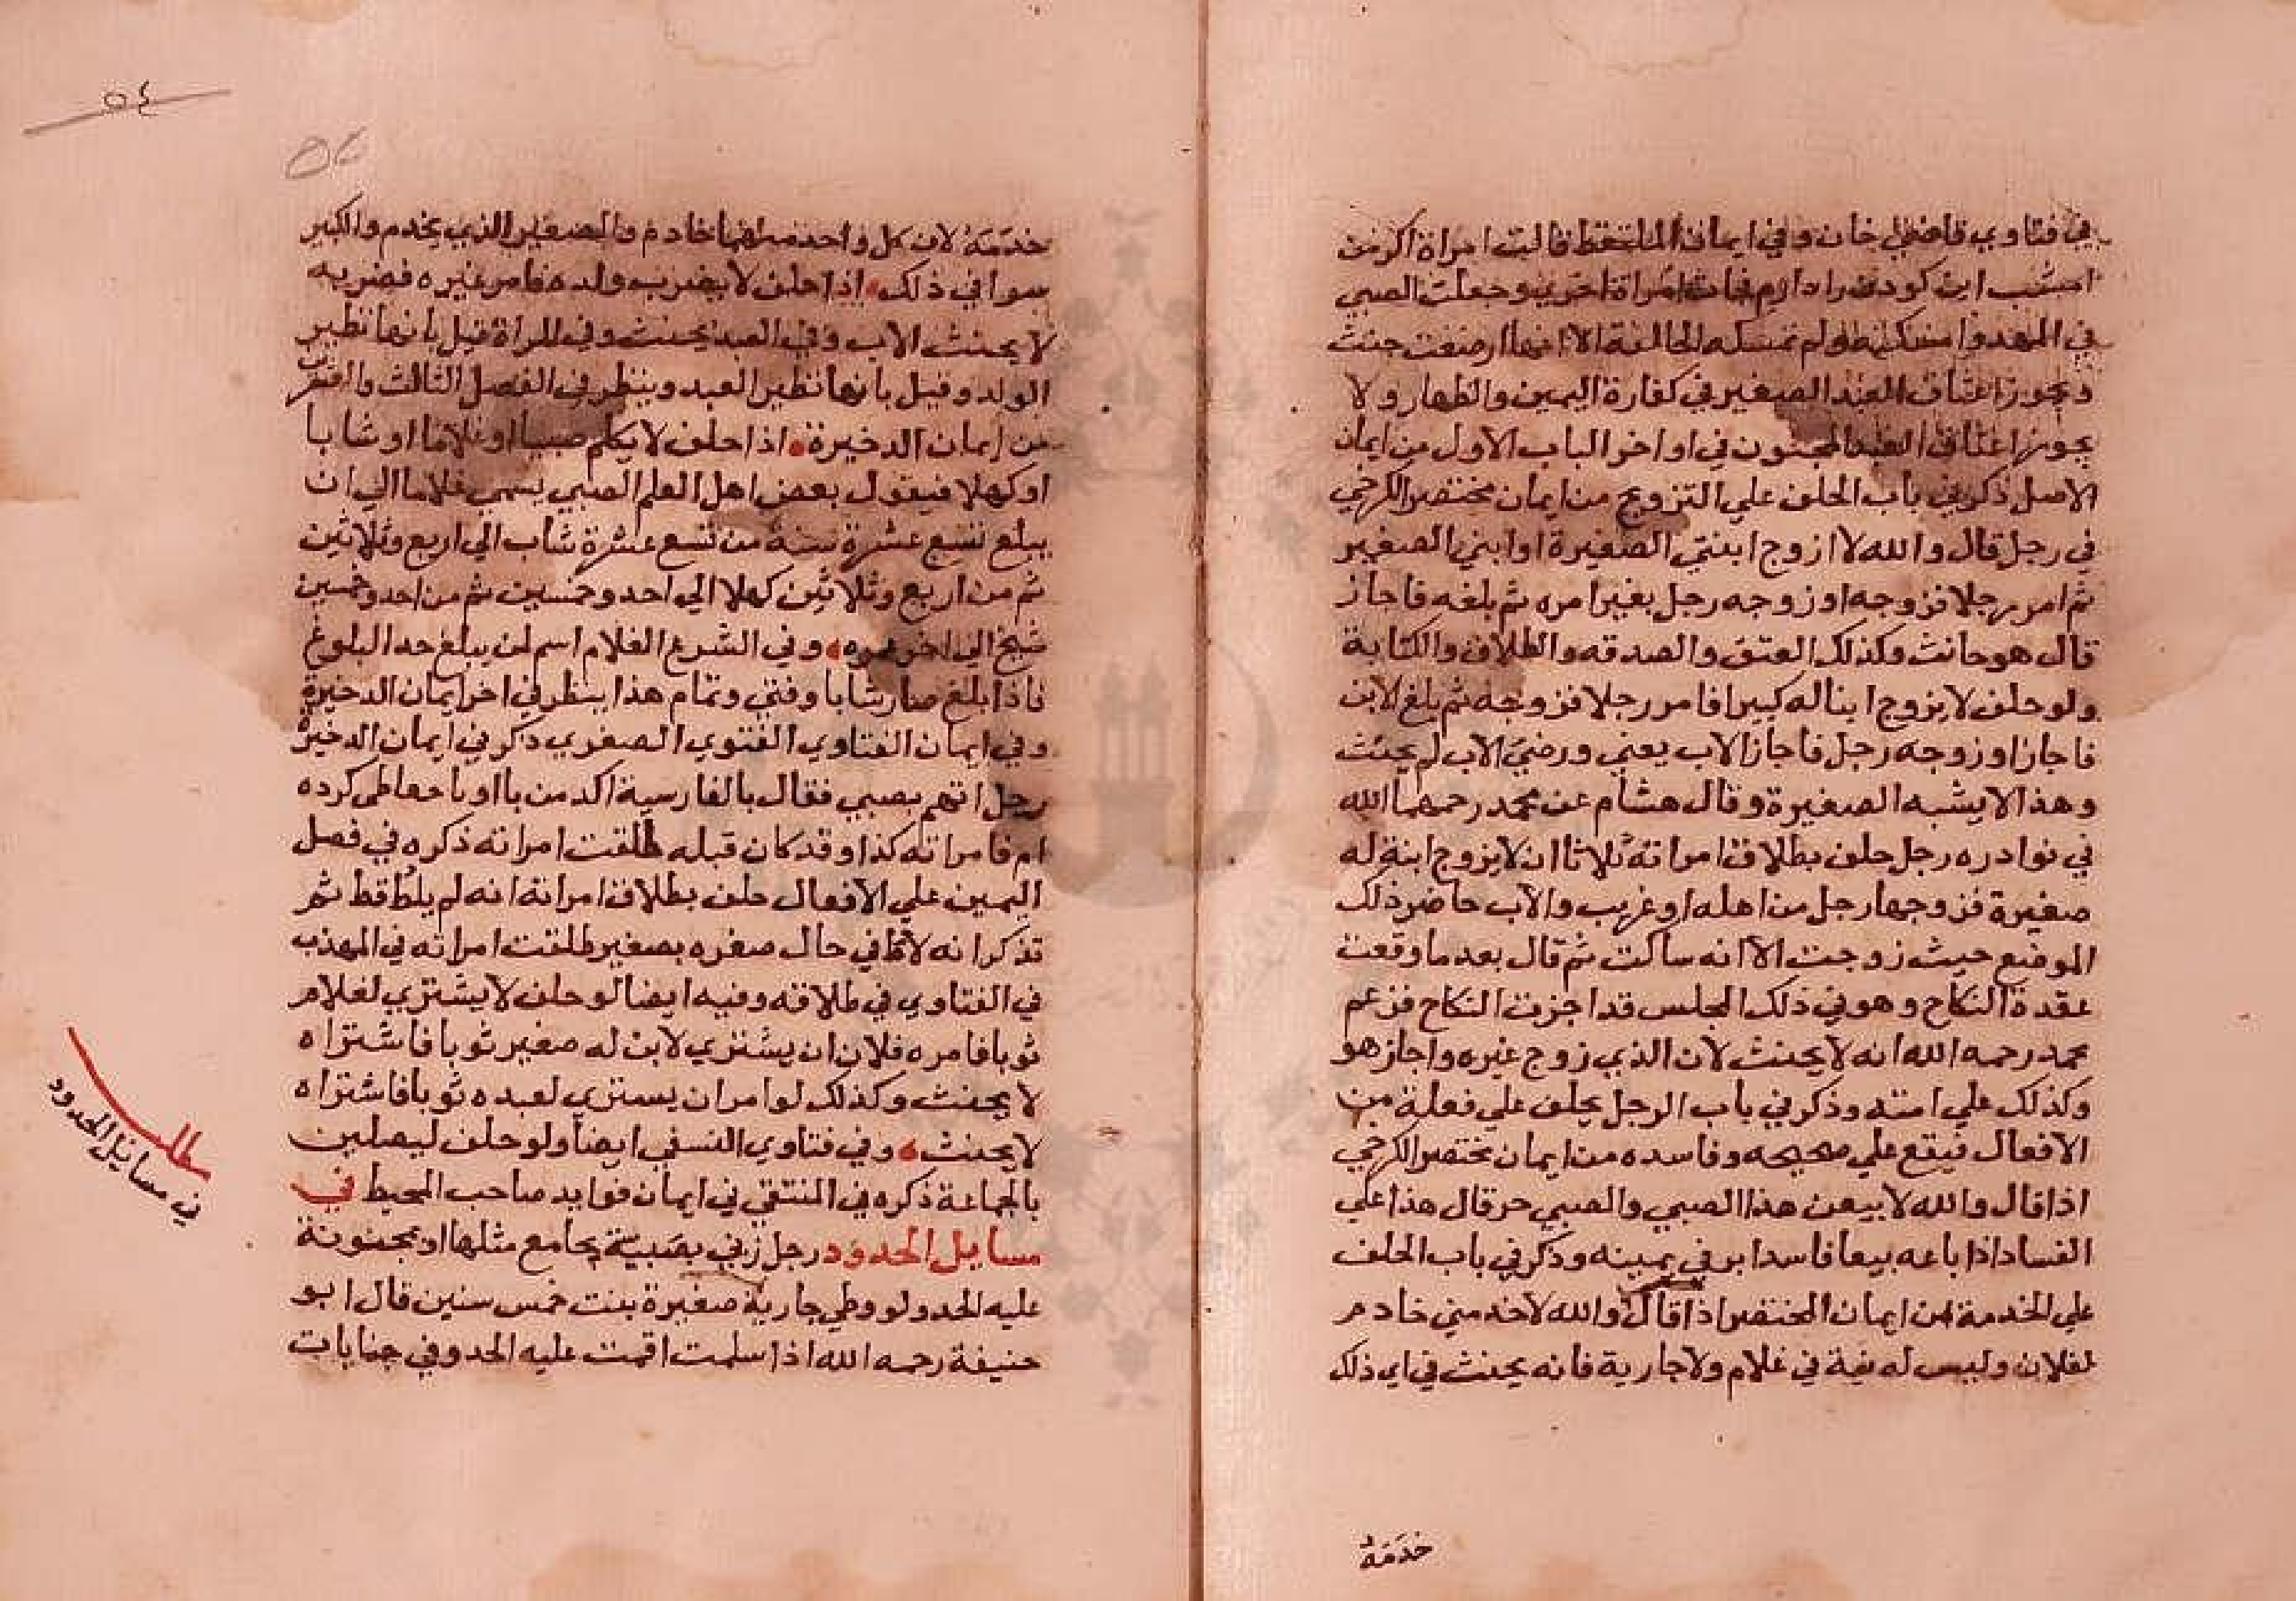 في فتاوي قاضي خان وفي ايمان الملتقط قالت امراة اكر من
امشب اين كودك را دارم فجات امراة اخري وجعلت الصبي
في المهد وامسكته ولم تمسكه الحالفة الا انها ارضعت حنث
ويجوز اعتاق العبد الصغير في كفارة اليمين والظهار ولا
يجوز اعتاق العبد المجنون في اواخر الباب الاول من ايمان
الاصل ذكر في باب الحلف علي التزويج من ايمان مختصر الكرخي
في رجل قال والله لا ازوج ابنتي الصغيرة او ابني الصغير
ثم امر رجلا فزوجه او زوجه رجل بغير امره ثم بلغه فاجاز
قال هو حانث وكذلك العتق والصدقه والطلاق والكتابة
ولو حلف لا يزوج ابنا له كبيرا فامر رجلا فزوجه ثم بلغ الابن
فاجاز او زوجه رجل فاجاز الاب يعني ورضي الاب لم يحنث
وهذا لا يشبه الصغيرة وقال هشام عن محمد رحمهما الله
في نوادره رجل حلف بطلاق امراته ثلاثا ان لا يزوج ابنة له
صغيرة فزوجها رجل من اهله او غريب والاب حاضر ذلك
الموضع حيث زوجت الا انه ساكت ثم قال بعد ما وقعت
عقدة النكاح وهو في ذلك المجلس قد اجزت النكاح فزعم
محمد رحمه الله انه لا يحنث لان الذي زوج غيره واجاز هو
وكذلك علي امته وذكر في باب الرجل يحلف علي فعلة من
الافعال فيقع علي صحيحه وفاسده من ايمان مختصر الكرخي
اذا قال والله لا بيعن هذا الصبي والصبي حر قال هذا علي
الفساد اذا باعه بيعا فاسدا بر في يمينه وذكر في باب الحلف
علي الخدمة من ايمان المختصر اذا قال والله لا خدمني خادم
لفلان وليس له نية في غلام ولا جارية فانه يحنث في اي ذلك
خدمَهُ
٥٤
٥٤
خدمَهُ لان كل واحد منهما خادم والصغير الذي يخدم والكبير
سوا في ذلك اذا حلف لا يضرب ولده فامر غيره فضربه
لا يحنث الاب وفي العبد يحنث وفي المراة قيل بانها نظير
الولد وقيل بانها نظير العبد وينظر في الفصل الثالث والعشر
من ايمان الدخيرة اذا حلف لا يكلم صبيا او غلاما او شابا
او كهلا فيقول بعض اهل العلم الصبي يسمي غلاما الي ان
يبلغ تسع عشرة سنة من تسع عشرة شاب الي اربع وثلاثين
ثم من اربع وثلاثين كهلا الي احد وخمسين ثم من احد وخمسين
شيخ الي اخر عمره وفي الشرع الغلام اسم لمن يبلغ حد البلوغ
فاذا بلغ صار شابا وفتي وتمام هذا ينظر في اخر ايمان الدخيرة
وفي ايمان الفتاوي الفتوي الصغري ذكر في ايمان الدخيرة
رجل اتهم بصبي فقال بالفارسية اكد من با او ناحفاظي كرده
ام فامراته كذا وقد كان قبله طلقت امراته ذكره في فصل
اليمين علي الافعال حلف بطلاق امراته انه لم يلط قط ثم
تذكر انه لاط في حال صغره بصغير طلقت امراته في المهذب
في الفتاوي في طلاقه وفيه ايضا لو حلف لا يشتري لغلام
ثوبا فامره فلان ان يشتري لابن له صغير ثوبا فاشتراه
لا يحنث وكذلك لو امر ان يستري لعبده ثوبا فاشتراه
لا يحنث وفي فتاوي النسفي ايضا ولو حلف ليصلين
بالجماعة ذكره في المنتقي في ايمان فوايد صاحب المحيط في
مسايل الحدود رجل زني بصبية يجامع مثلها او مجنونة
عليه الحد ولو وطي جارية صغيرة بنت خمس سنين قال ابو
حنيفة رحمه الله اذا سلمت اقمت عليه الحد وفي جنايات
مطلب
في مسايل الحدود